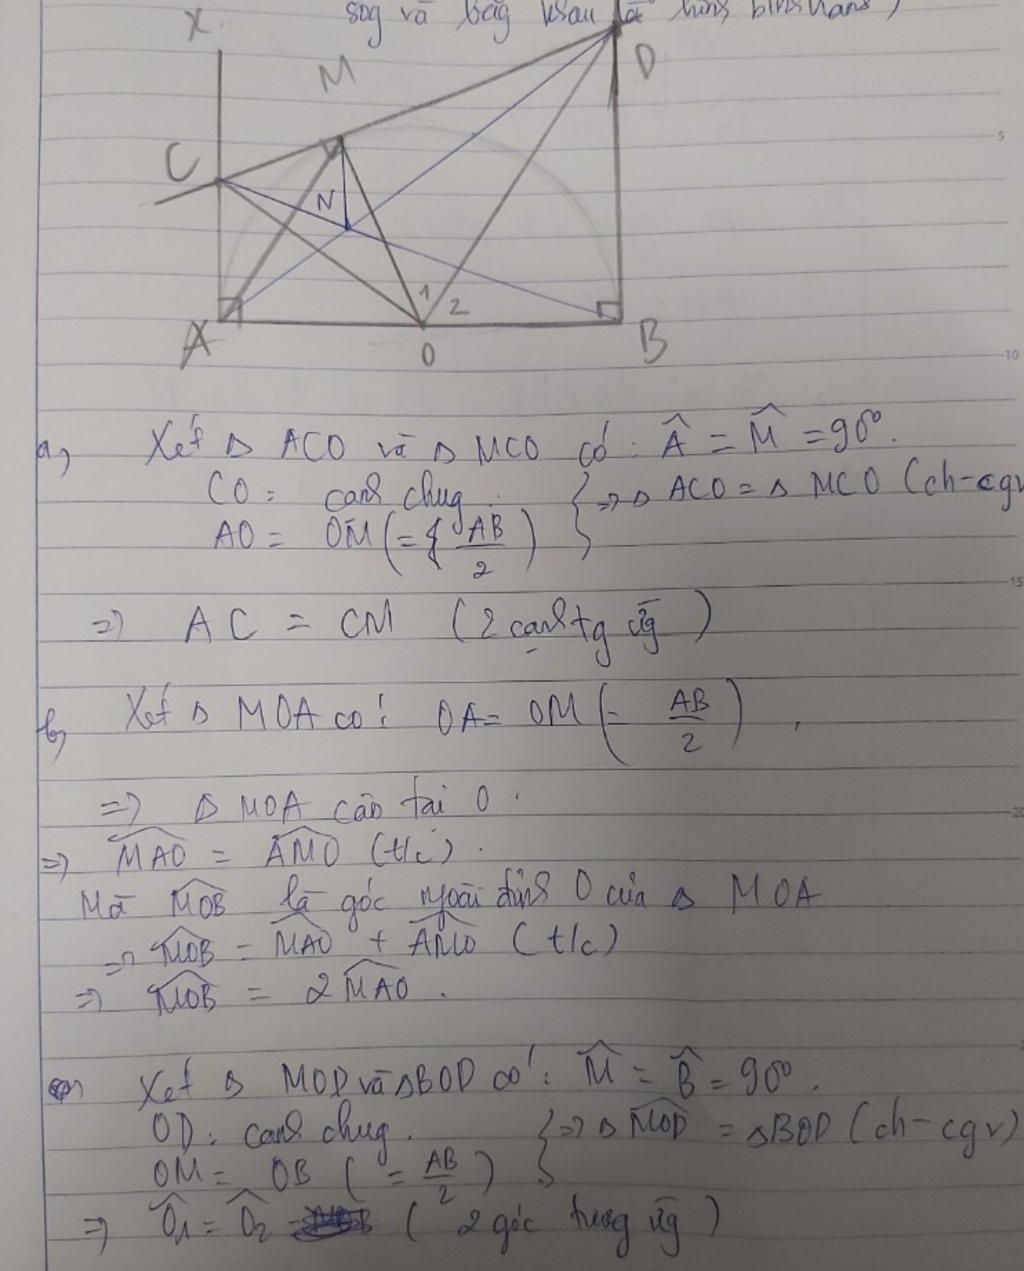 sog và bằg nhau là hình bìnhhành)
x
M
D
C
5
N
1 2
A
O
B
10
a, Xét Δ ACO và Δ MCO có: Â = M̂ = 90°.
CO: cạnh chug. } => Δ ACO = Δ MCO (ch-cgv
AO = OM (= AB/2)
15
=> AC = CM (2 cạnh tg ứg)
b, Xét Δ MOA có: OA = OM (= AB/2),
=> Δ MOA cân tại O.
20
=> MAO = AMO (t/c).
Mà MOB là góc ngoài đỉnh O của Δ MOA
=> MOB = MAO + AMO (t/c)
=> MOB = 2 MAO.
Xét Δ MOD và Δ BOD có: M̂ = B̂ = 90°.
OD: cạnh chug. } => Δ MOD = Δ BOD (ch-cgv)
OM = OB (= AB/2)
=> Ô1 = Ô2 (2 góc tương ứg)